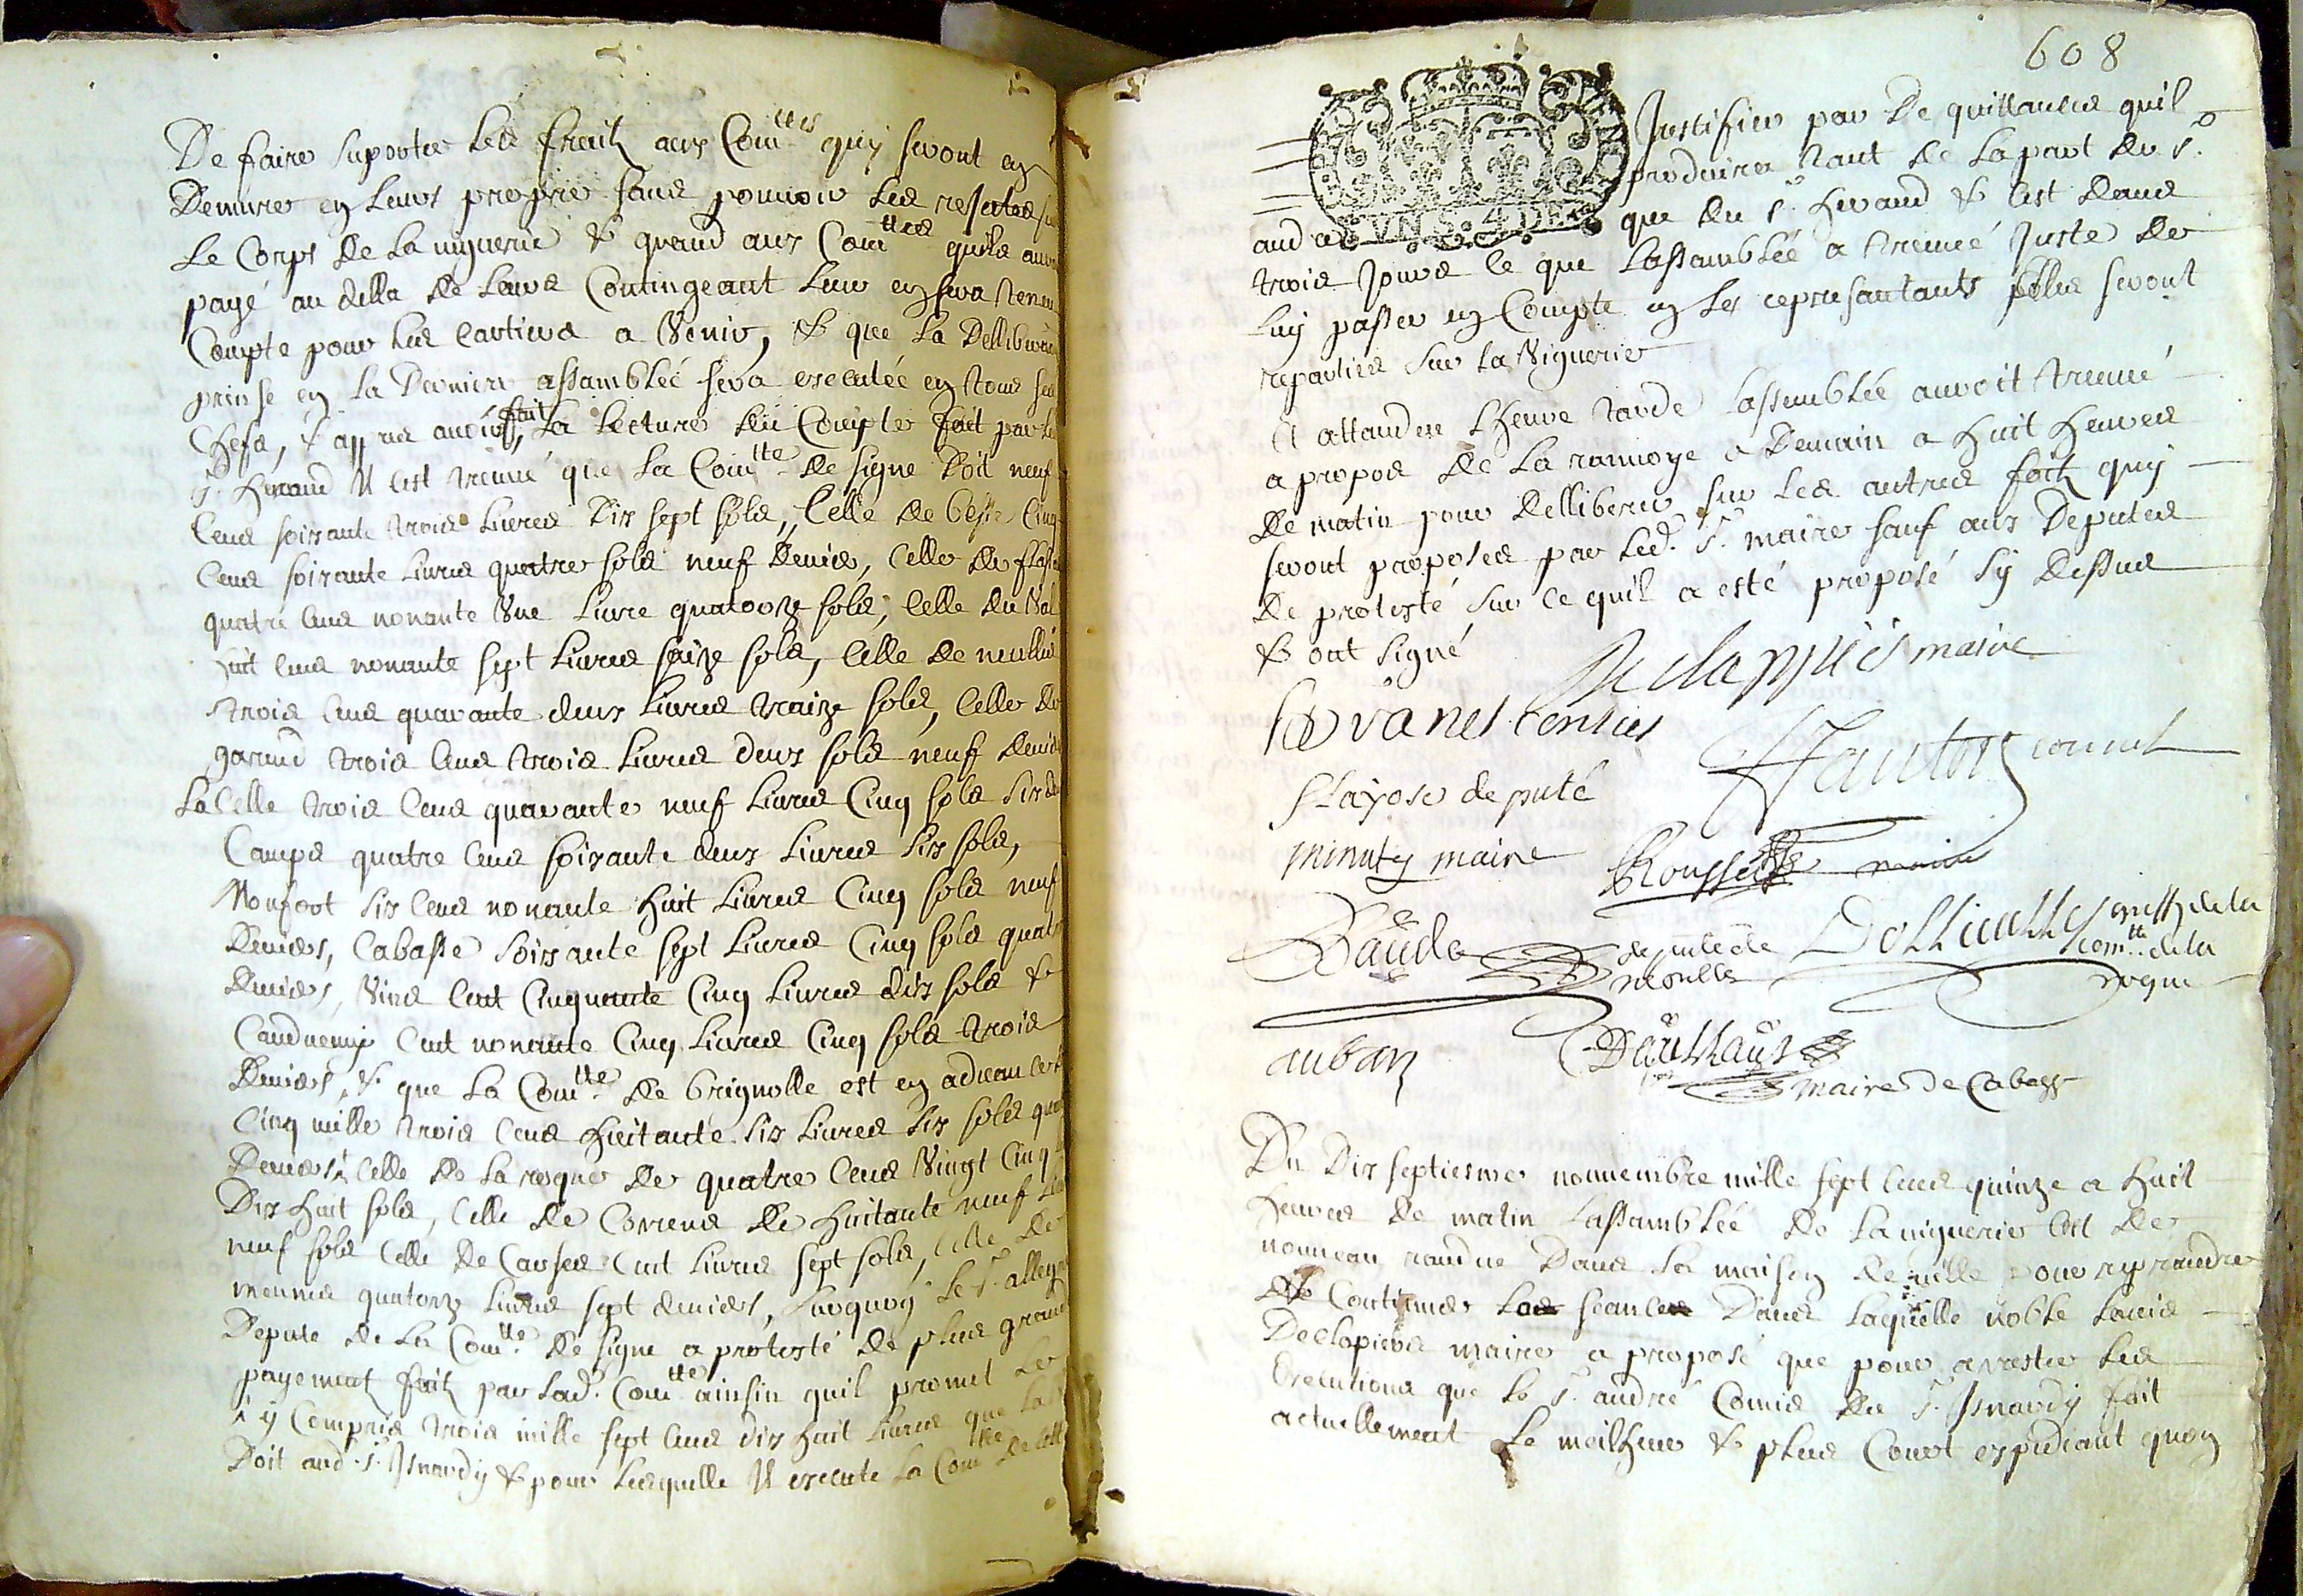 De faire suporter les fraitz aux Com.ttes quy seront en
Demure en leurs propre sans pouvoir les rejetter
Le Corps De La viguerie & quand aux Com.ttes quils auro
payé au della de leurs Contingeant leur en sera teneu
Compte pour les cartiers a Venir, & que La Delliberation
prinse en La Derniere assamblée sera executée en tous ses
Chefs, & appres avoir fait La Lecture du Compte fait par le
S.r heraud Il est treuvé que La Com.tte de signe Doit neuf
Cens soixante trois Livres Dix sept sols, Celle de besse Cinq
Cens soixante Livres quatre sols neuf Deniers, Celle de flass
quatre Cens nonante Une Livre quatorze sols, Celle du Val
huit Cens nonante sept Livres saize sols, Celle de neulles
trois Cens quarante deux Livres traize sols, Celle de
gareud trois Cens trois Livres deux sols neuf Deniers
La Celle trois Cens quarante neuf Livres Cinq sols six de
Camps quatre Cens soixante deux Livres six sols,
Monfort six Cens nonante huit Livres Cinq sols neuf
Deniers, Cabasse soixante sept Livres Cinq sols quatre
Deniers, Vins Cent Cinquante Cinq Livres dix sols &
Candumy Cent nonante Cinq Livres Cinq sols trois
Deniers, & que La Com.tte de brignolle est en advance de
Cinq mille trois Cens huitante six Livres six sols quat
Deniers, Celle de La roque de quatre Cens Vingt Cinq
Dix huit sols, Celle de Correns de huitante neuf Liv
neuf sols Celle de Carses Cent Livres sept sols, Celle de
mesmes quatorze Livres sept deniers, surquoy le S.r allegre
Deputé de La Com.tte de signe a protesté de plus grand
payement fait par lad. Com.tte ainsin quil promet de
s'y Compris trois mille sept Cens dix huit Livres que la
Doit aud. S.r Isnardy & pour lesquelle Il execute La Com.tte de lad
608
Justifier par de quittances quil
produira tant de la part du S.r
VN S. 4 DE
aud que du S.r heraud & C'est dans
trois Jours ce que Lassamblée a treuvé Juste de
luy passer en Compte en les represantants elles seront
reparties sur la Viguerie
Et attandeu Lheure tarde Lassemblée auroit treuvé
a propos de La ranvoye a Demain a huit heures
de matin pour delliberer sur les autres faitz quy
seront proposées par led. S.r maire sauf aux Deputes
de protesté sur ce quil a esté proposé sy dessus
& ont signé
Declapiés maire
van
S Layose deputé
minuty maire
Rousset maire
Baude
depute de neoulle
greff. de la com.tte de la roque
auban
Dauthaus
maire de Cabasse
Du Dix septiesme novembre mille sept Cens quinze a huit
heures de matin Lassamblée de La viguerie C'est de
nouveau randue Dans la maison de ville pour reprandre
& Continuer La seance Dans laquelle noble Louis
Declapiers maire a proposé que pour arrester les
Executions que le S.r andré Comis du S.r Isnardy fait
actuellement le meilheur & plus Court expediant quon